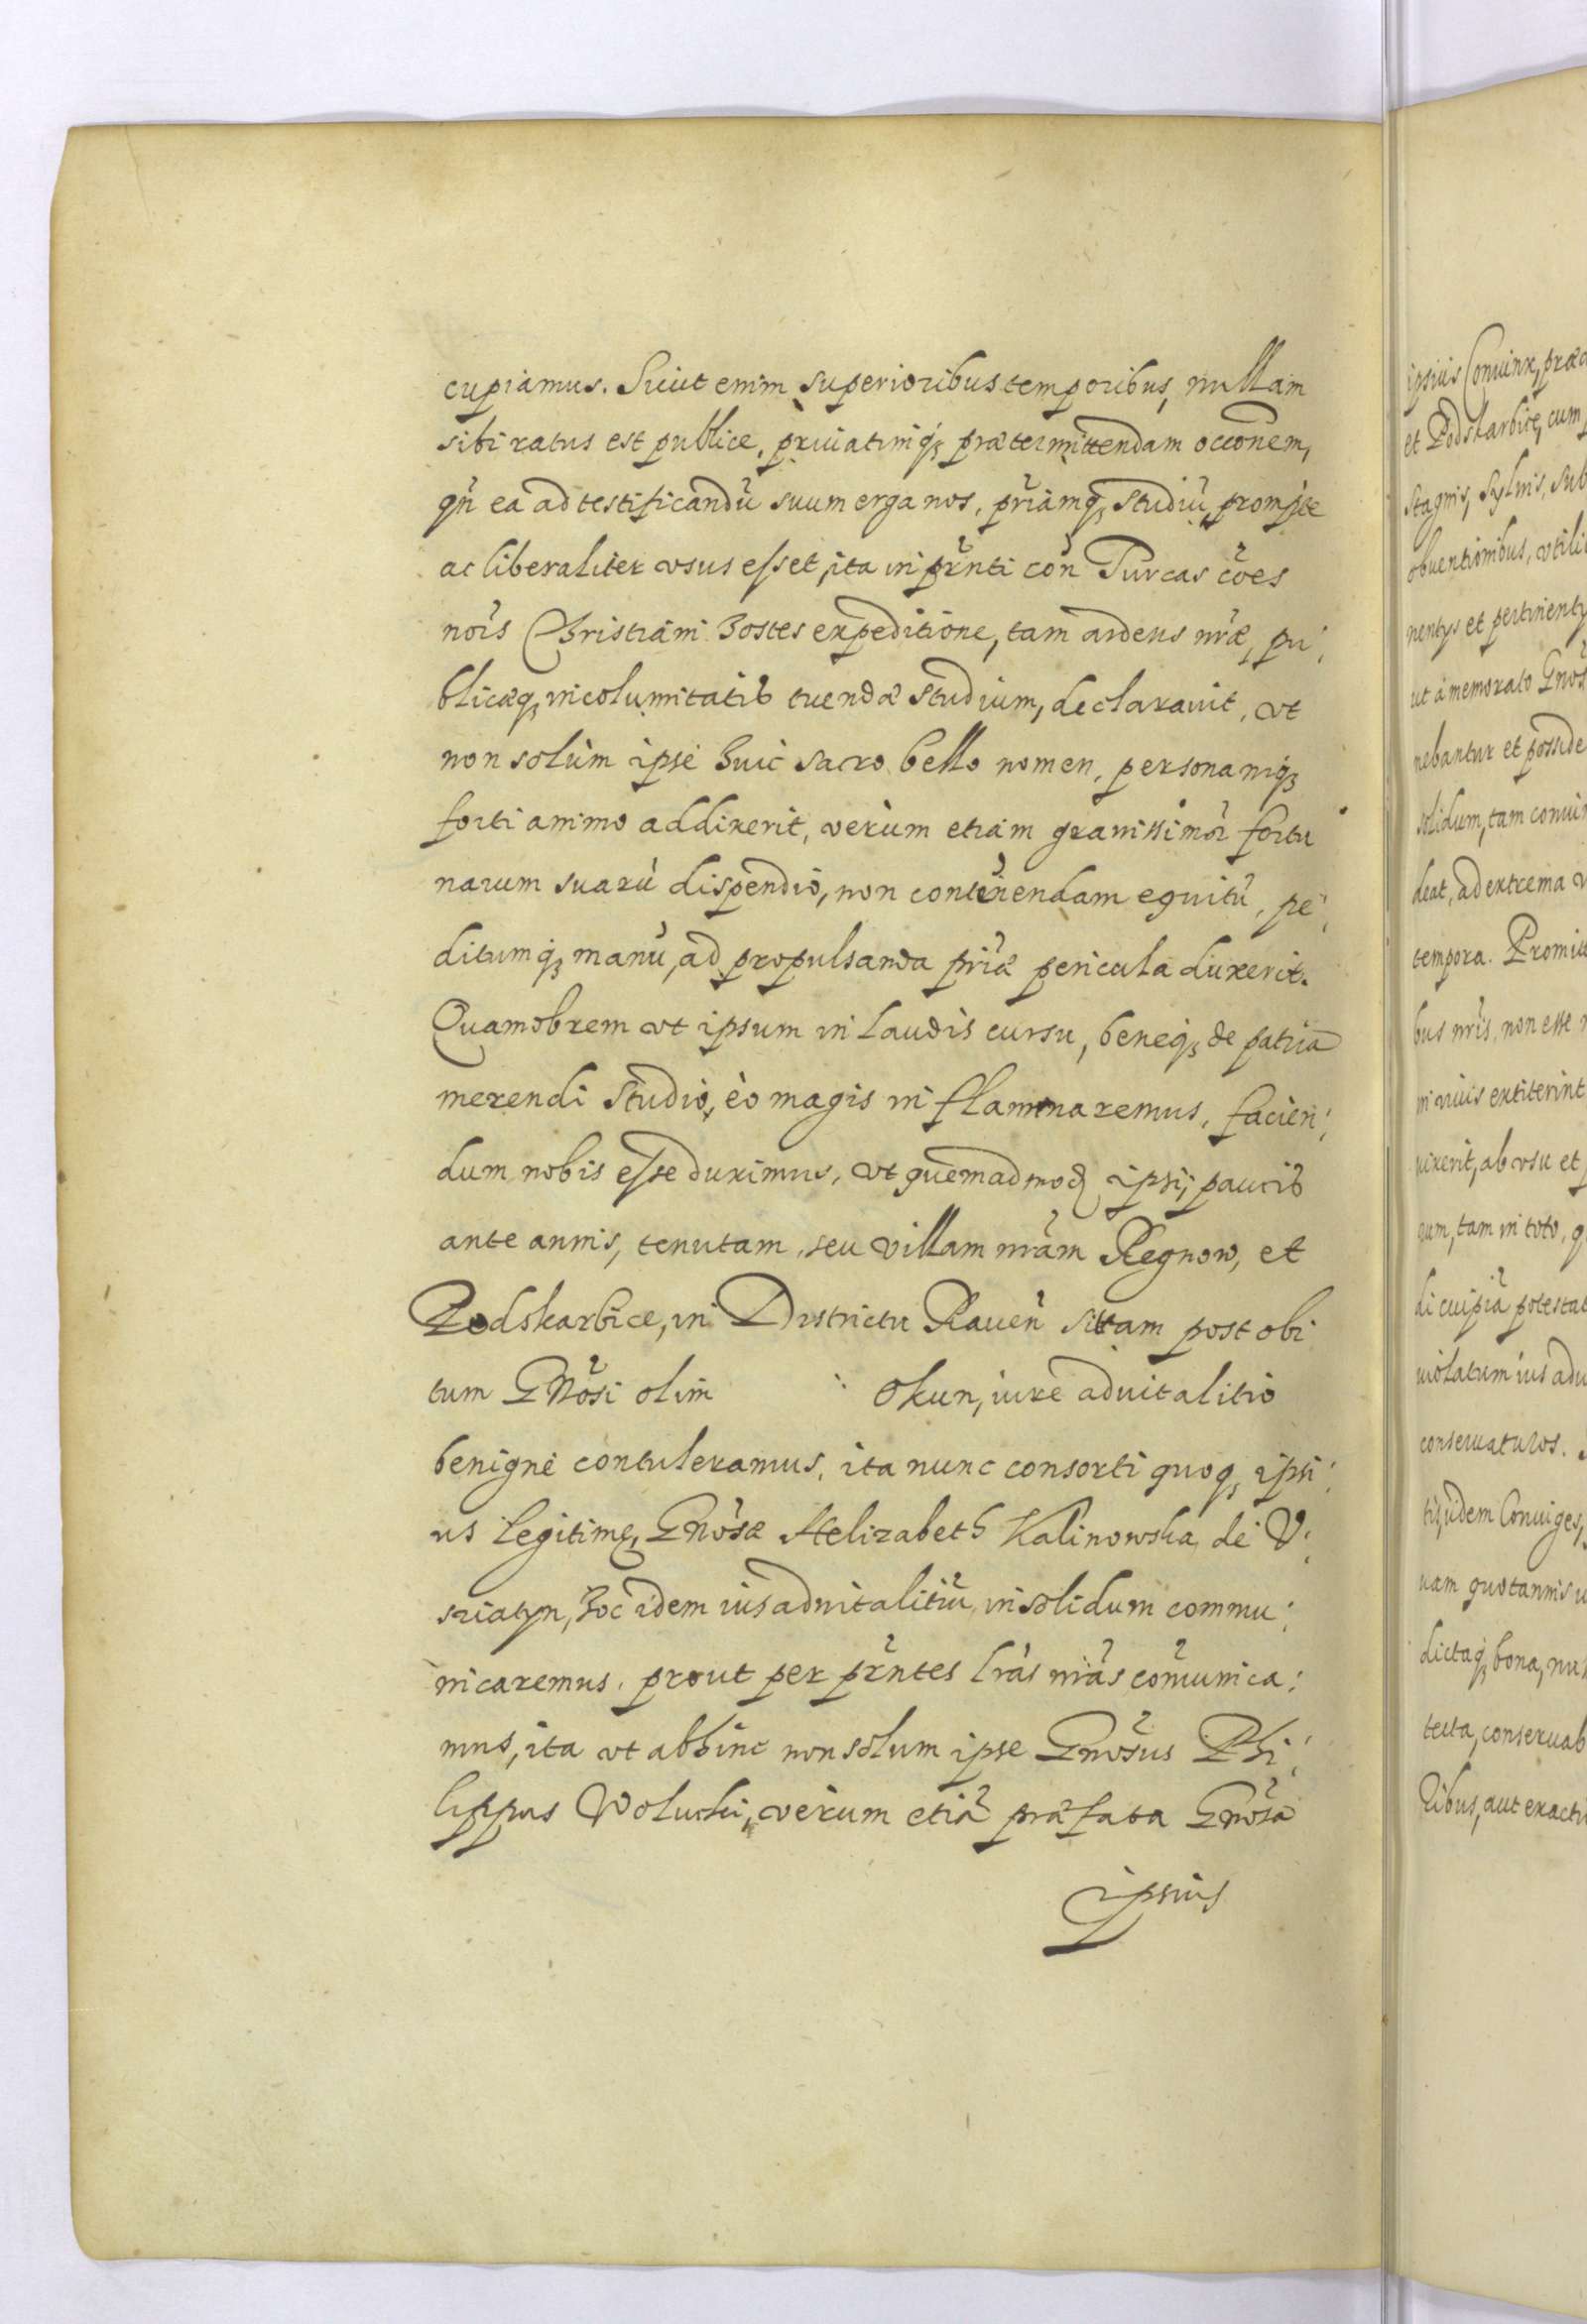 cupiamus. Sicut enim superioribus temporibus, nullam
sibi ratus est publice, priuatimq; prætermittendam occõnem,
qñ ea ad testificandũ suum erga nos, pr̃iamq; studiũ, prompte
ac liberaliter vsus esset, ita in pr̃nti cõn Turcas cões
nõis Christiani hostes expeditione, tam ardens nr̃æ, pu:
blicæq; incolumitatis tuendæ studium, declarauit, vt
non solùm ipse huic sacro bello nomen, personamq;
forti animo addixerit, verùm etiam grauissimor̃ fortu
narum suarũ dispendio, non contemnendam equitũ, pe:
ditumq; manũ, ad propulsanda pr̃iæ pericula duxerit.
Quamobrem vt ipsum in laudis cursu, beneq; de patria
merendi studio, eò magis inflammaremus, facien:
dum nobis esse duximus, vt quemadmod ipsi, paucis
ante annis, tenutam, seu villam nr̃am Regnow, et
Podskarbice, in Districtu Rauen̄ sitam post obi
tum Gnõsi olim Okun, iure aduitalitio
benignè contuleramus, ita nunc consorti quoq; ipsi:
us legitimę, Gnõsæ Helizabeth Kalinowska de V:
sciatyn, hoc idem ius aduitalitiũ, in solidum commu:
nicaremus, prout per pr̃ntes lr̃as nr̃as com̃unica:
mus, ita vt abhinc non solum ipse Gnõsus Phi:
lippus Wolucki, verùm etiã præfata Gnõsa
ipsius
ipsius Coniunx, præd
et Podskarbice, cum
stagnis, syluis, sub
obuentionibus, vtili
nentys et pertinenty
ut à memorato Gnõs
nebantur et posside
solidum, tam coniu
deat, ad extrema v
tempora. Promitt
bus nr̃is, non esse
in viuis extiterint
uixerit, ab vsu et
rum, tam in toto, q
di cuipiã potestat
uiolatum ius adu
conseruaturos.
tij, ijdem Coniuges,
nam quotannis
dictaq; bona, nu
tecta, conseruab
libus, aut exacti